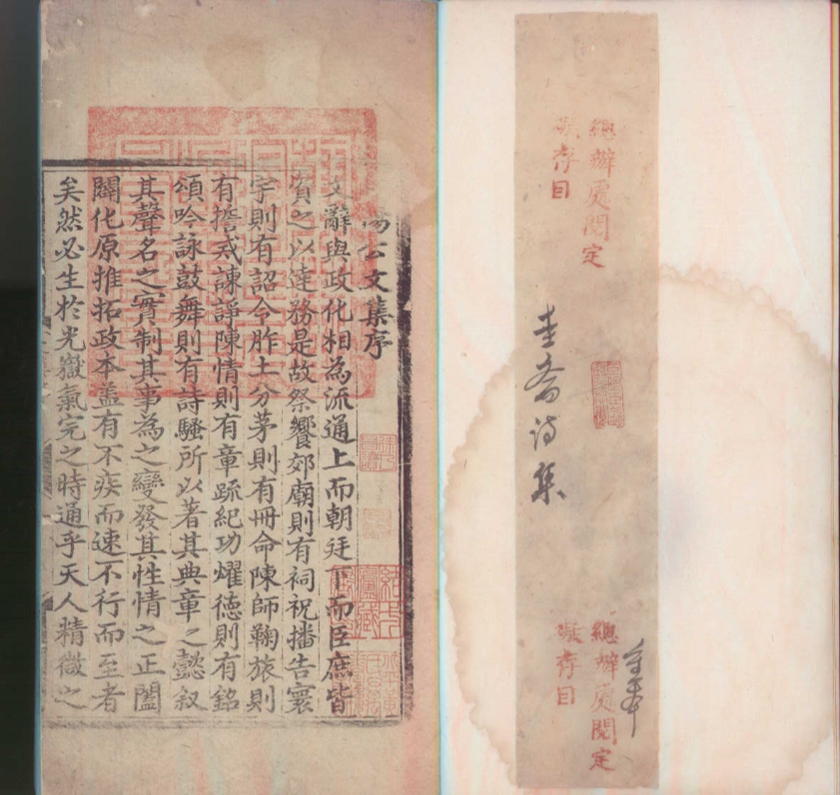 總辦處閱定
擬存目
圭齋詩集
總辦處閱定
擬存目
陽公文集序
文辭與政化相為流通上而朝廷下而臣庶皆
資之以達務是故祭饗郊廟則有祠祝播告寰
宇則有詔令胙土分茅則有冊命陳師鞠旅則
有誓戒諫諍陳情則有章疏紀功耀德則有銘
頌吟詠鼓舞則有詩騷所以著其典章之懿叙
其聲名之實制其事為之變發其性情之正闔
闢化原推拓政本盖有不疾而速不行而至者
矣然必生於光嶽氣完之時通乎天人精微之